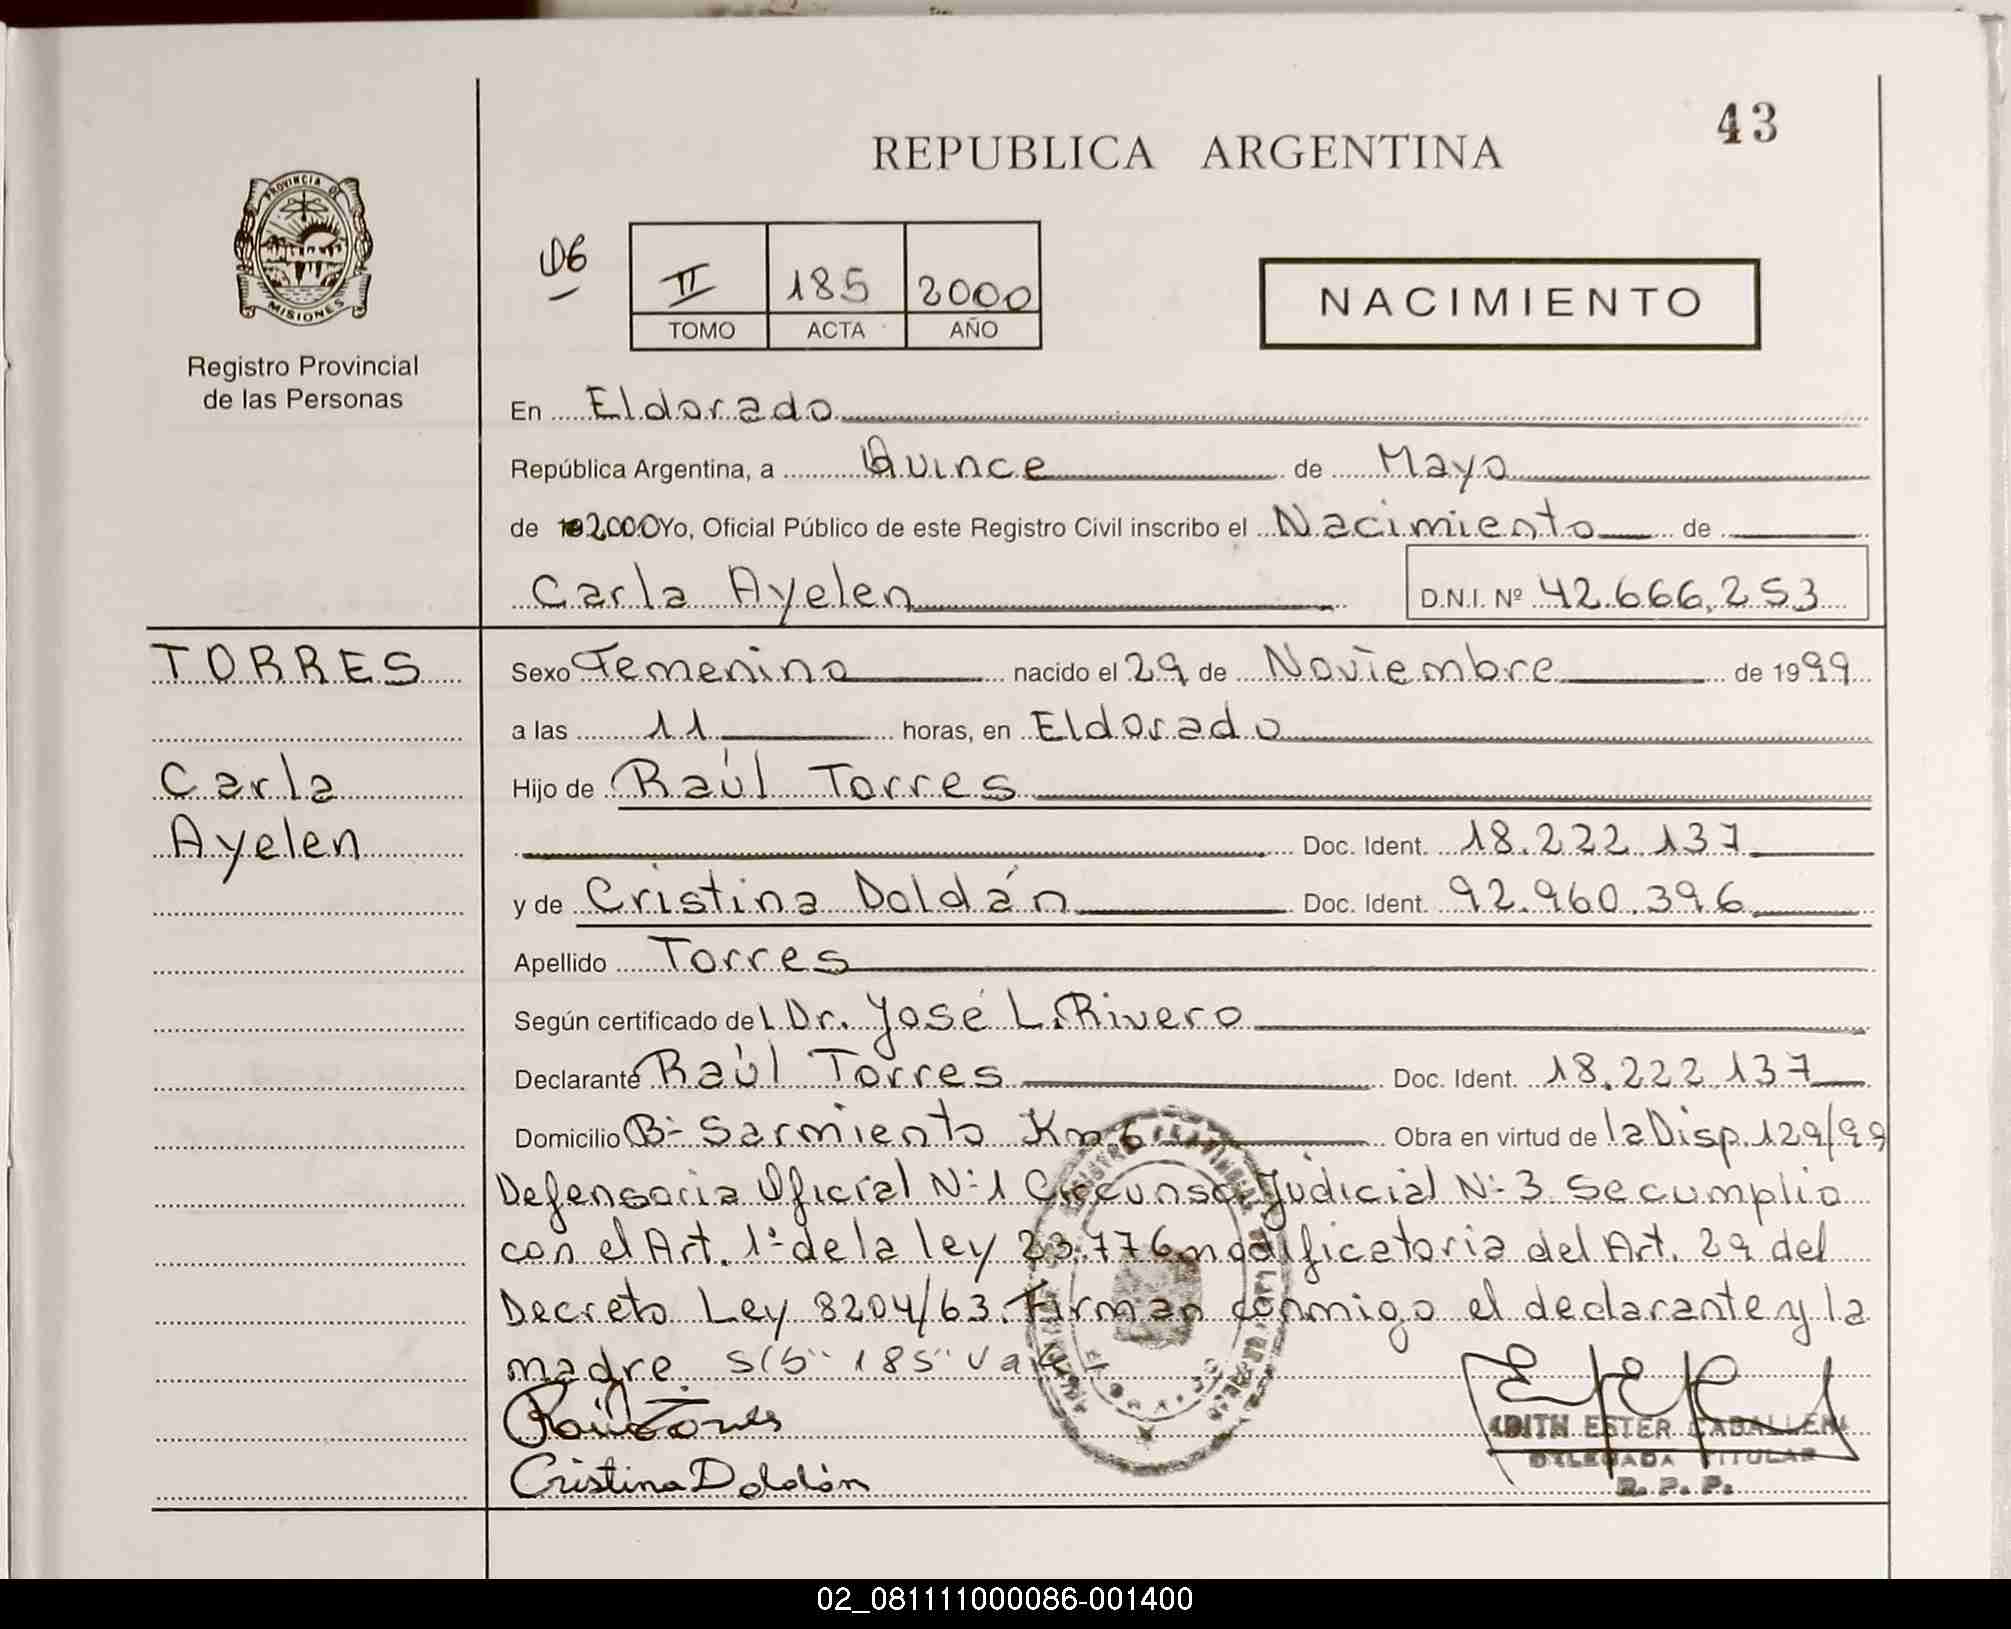 43
REPUBLICA ARGENTINA
PROVINCIA DE
MISIONES
Registro Provincial
de las Personas
06
II 185 2000
TOMO ACTA AÑO
NACIMIENTO
En Eldorado
República Argentina, a Quince de Mayo
de 2000 Yo, Oficial Público de este Registro Civil inscribo el Nacimiento de
Carla Ayelen D.N.I. Nº 42.666.253
TORRES
Carla
Ayelen
Sexo Femenino nacido el 29 de Noviembre de 1999
a las 11 horas, en Eldorado
Hijo de Raúl Torres
Doc. Ident. 18.222.137
y de Cristina Doldán Doc. Ident. 92.960.396
Apellido Torres
Según certificado del Dr. José L. Rivero
Declarante Raúl Torres Doc. Ident. 18.222.137
Domicilio Bº Sarmiento Km 6 Obra en virtud de la Disp. 129/99
Defensoria Oficial Nº 1 Circunsc. Judicial Nº 3 Se cumplio
con el Art. 1º de la ley 23.776 modificatoria del Art. 29 del
Decreto Ley 8204/63. Firman conmigo el declarante y la
madre. S/b "185" Vale
Raúl Torres
Cristina Doldán
EDITH ESTER CABALLERO
DELEGADA TITULAR
R. P. P.
02_081111000086-001400